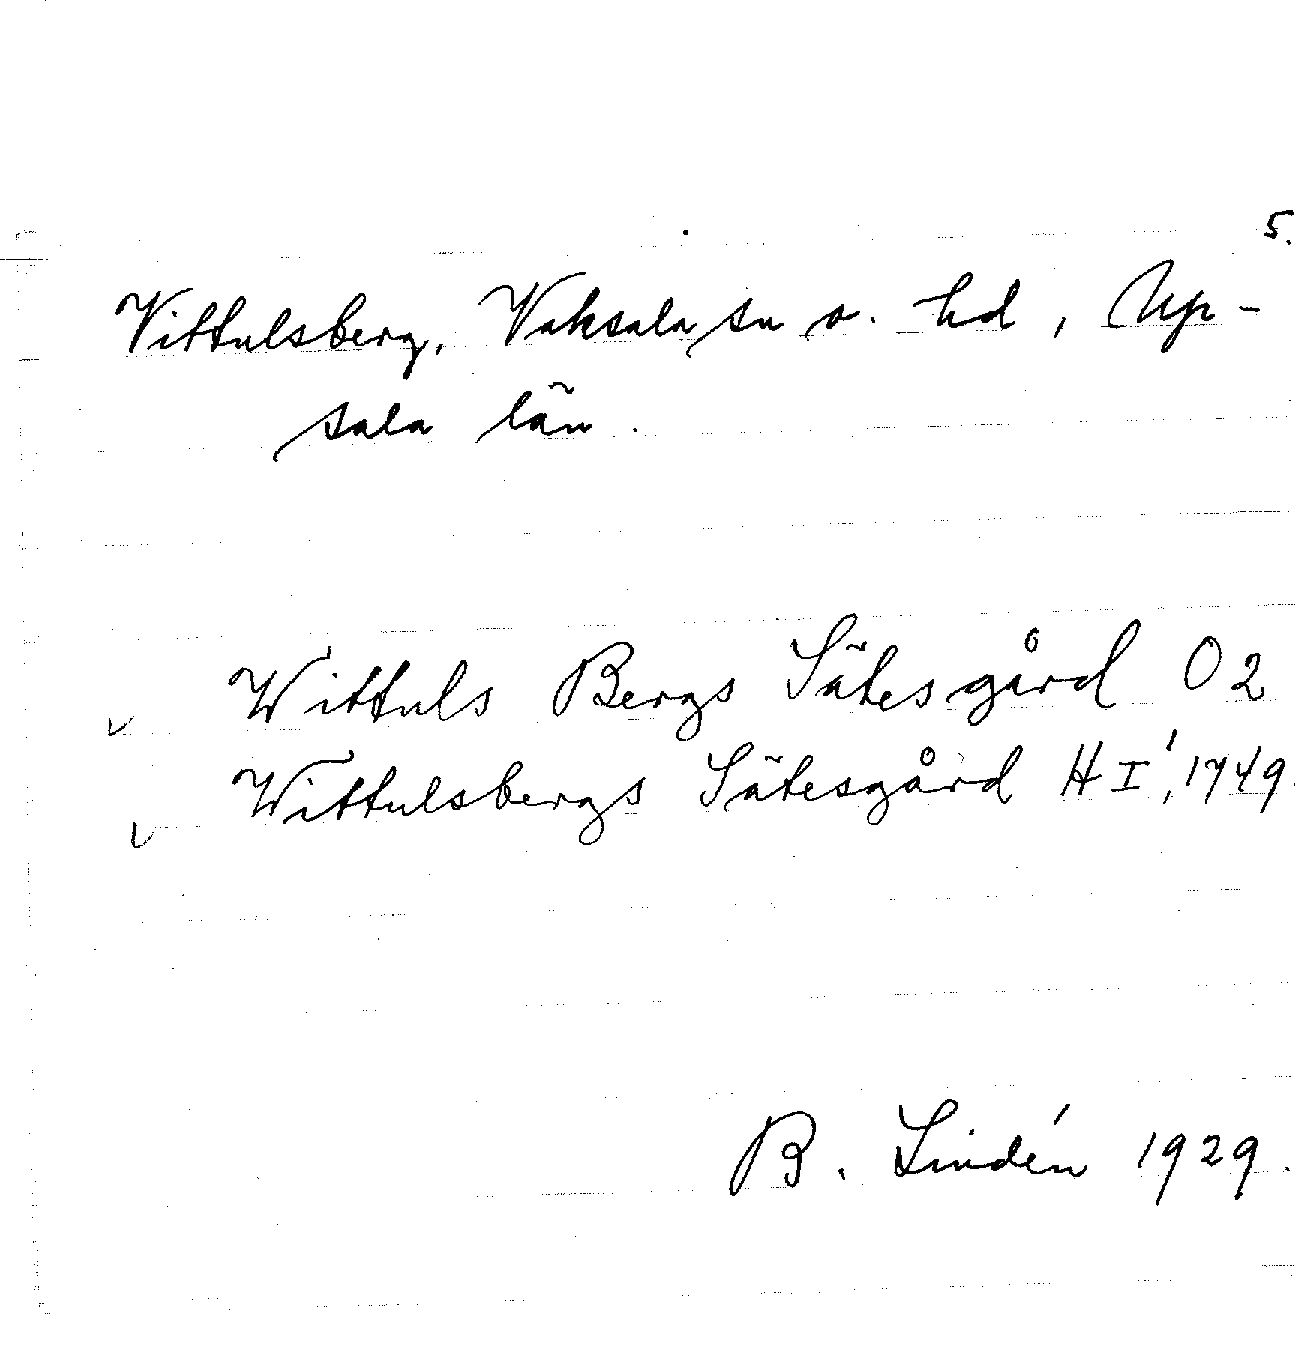 5.
Vittulsberg, Vaksala sn o. hd, Up-
sala län.
✓ Wittuls Bergs Sätesgård O2
✓ Wittulsbergs Sätesgård H I', 1749.
B. Lindén 1929.